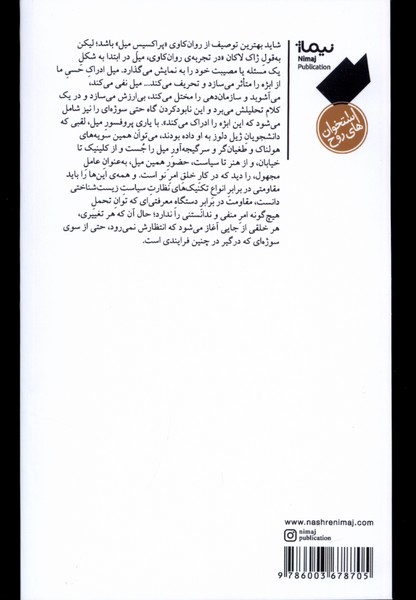 نیماژ
Nimaj
Publication
استخوان
های روح
شاید بهترین توصیف از روان‌کاوی «پراکسیس میل» باشد؛ لیکن
به‌قول ژاک لاکان «در تجربه‌ی روان‌کاوی، میل در ابتدا به شکل
یک مسئله یا مصیبت خود را به نمایش می‌گذارد. میل ادراک حسی ما
از ابژه را متأثر می‌سازد و تحریف می‌کند... میل نفی می‌کند،
می‌آشوبد و سازمان‌دهی را مختل می‌کند، بی‌ارزش می‌سازد و در یک
کلام تحلیلش می‌برد و این نابودکردن گاه حتی سوژه‌ای را نیز شامل
می‌شود که این ابژه را ادراک می‌کند». با یاری پروفسورِ میل، لقبی که
دانشجویان ژیل دلوز به او داده بودند، می‌توان همین سویه‌های
هولناک و طغیان‌گر و سرگیجه‌آور میل را جُست و از کلینیک تا
خیابان، و از هنر تا سیاست، حضور همین میل، به‌عنوان عامل
مجهول، را دید که در کار خلق امر نو است. و همه‌ی این‌ها را باید
مقاومتی در برابر انواع تکنیک‌های نظارتِ سیاستِ زیست‌شناختی
دانست، مقاومت در برابر دستگاه معرفتی‌ای که توان تحمل
هیچ‌گونه امر منفی و ندانستنی را ندارد؛ حال آن که هر تغییری،
هر خلقی از جایی آغاز می‌شود که انتظارش نمی‌رود، حتی از سوی
سوژه‌ای که درگیر در چنین فرایندی است.
www.nashrenimaj.com
nimaj
publication
9 786003 678705